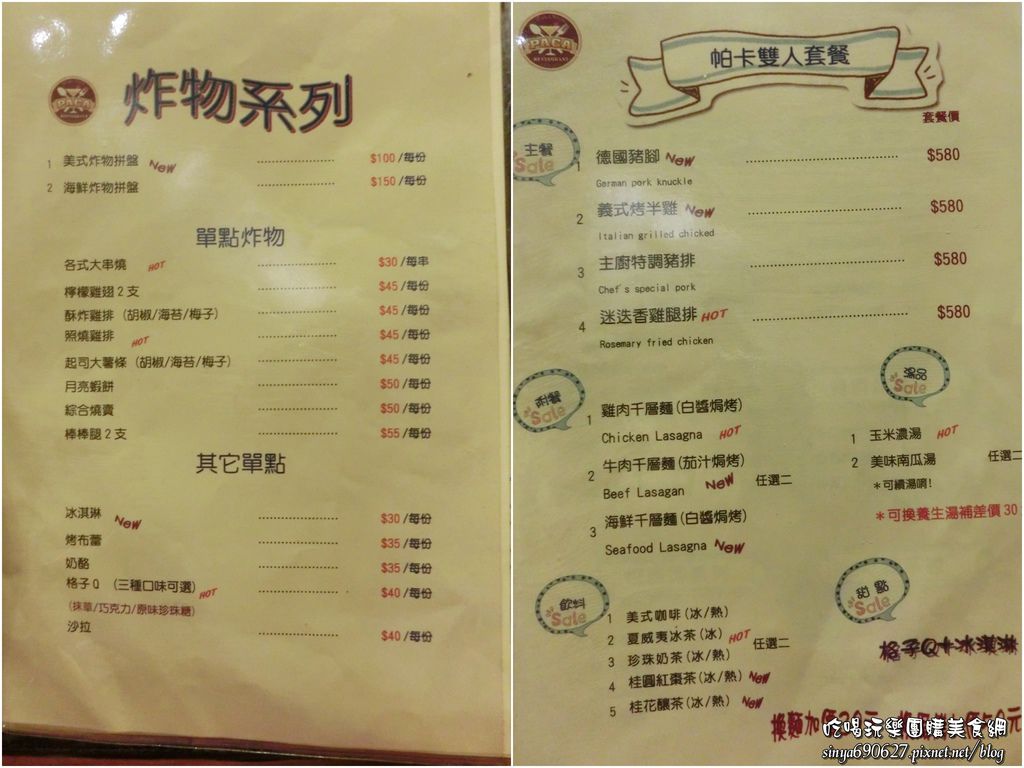 PACA
RESTAURANT
炸物系列
1 美式炸物拼盤 New $100/每份
2 海鮮炸物拼盤 $150/每份
單點炸物
各式大串燒 HOT $30/每串
檸檬雞翅2支 $45/每份
酥炸雞排 (胡椒/海苔/梅子) $45/每份
照燒雞排 HOT $45/每份
起司大薯條 (胡椒/海苔/梅子) $45/每份
月亮蝦餅 $50/每份
綜合燒賣 $50/每份
棒棒腿2支 $55/每份
其它單點
冰淇琳 New $30/每份
烤布蕾 $35/每份
奶酪 $35/每份
格子Q (三種口味可選) HOT $40/每份
(抹草/巧克力/原味珍珠糖)
沙拉 $40/每份
PACA
RESTAURANT
帕卡雙人套餐
套餐價
主餐
Sale
1 德國豬腳 New $580
German pork knuckle
2 義式烤半雞 New $580
Italian grilled chicked
3 主廚特調豬排 $580
Chef's special pork
4 迷迭香雞腿排 HOT $580
Rosemary fried chicken
附餐
Sale
1 雞肉千層麵(白醬焗烤)
Chicken Lasagna HOT
2 牛肉千層麵(茄汁焗烤)
Beef Lasagan New 任選二
3 海鮮千層麵(白醬焗烤)
Seafood Lasagna New
湯品
Sale
1 玉米濃湯 HOT
2 美味南瓜湯 任選二
*可續湯唷!
*可換養生湯補差價30
飲料
Sale
1 美式咖啡(冰/熱)
2 夏威夷冰茶(冰) HOT 任選二
3 珍珠奶茶(冰/熱)
4 桂圓紅棗茶(冰/熱) New
5 桂花釀茶(冰/熱) New
甜點
Sale
格子Q+冰淇淋
換麵加價30元
吃喝玩樂團購美食網
sinya690627.pixnet.net/blog